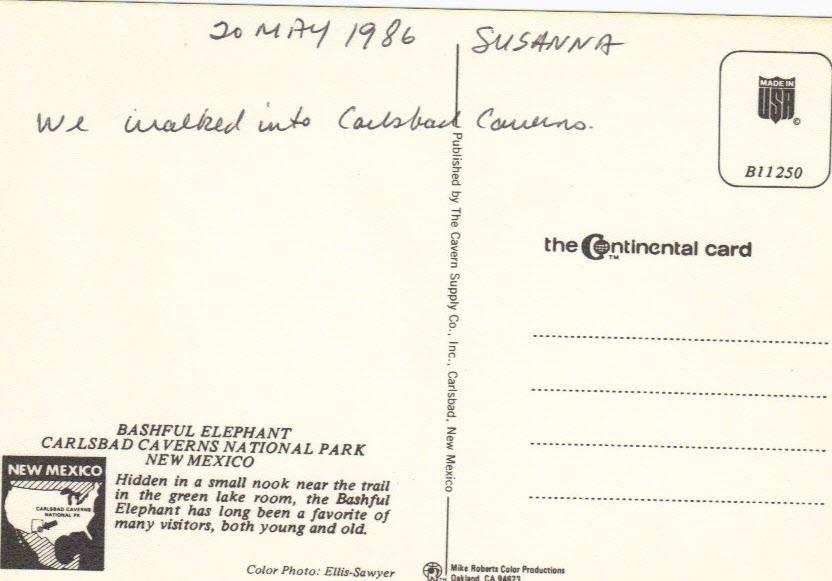 20 MAY 1986 SUSANNA
We walked into Carlsbad Caverns.
MADE IN
USA
©
B11250
Published by The Cavern Supply Co., Inc., Carlsbad, New Mexico
the Continental card
TM
BASHFUL ELEPHANT
CARLSBAD CAVERNS NATIONAL PARK
NEW MEXICO
Hidden in a small nook near the trail
in the green lake room, the Bashful
Elephant has long been a favorite of
many visitors, both young and old.
NEW MEXICO
CARLSBAD CAVERNS
NATIONAL PK
Color Photo: Ellis-Sawyer
TM
Mike Roberts Color Productions
Oakland, CA 94623